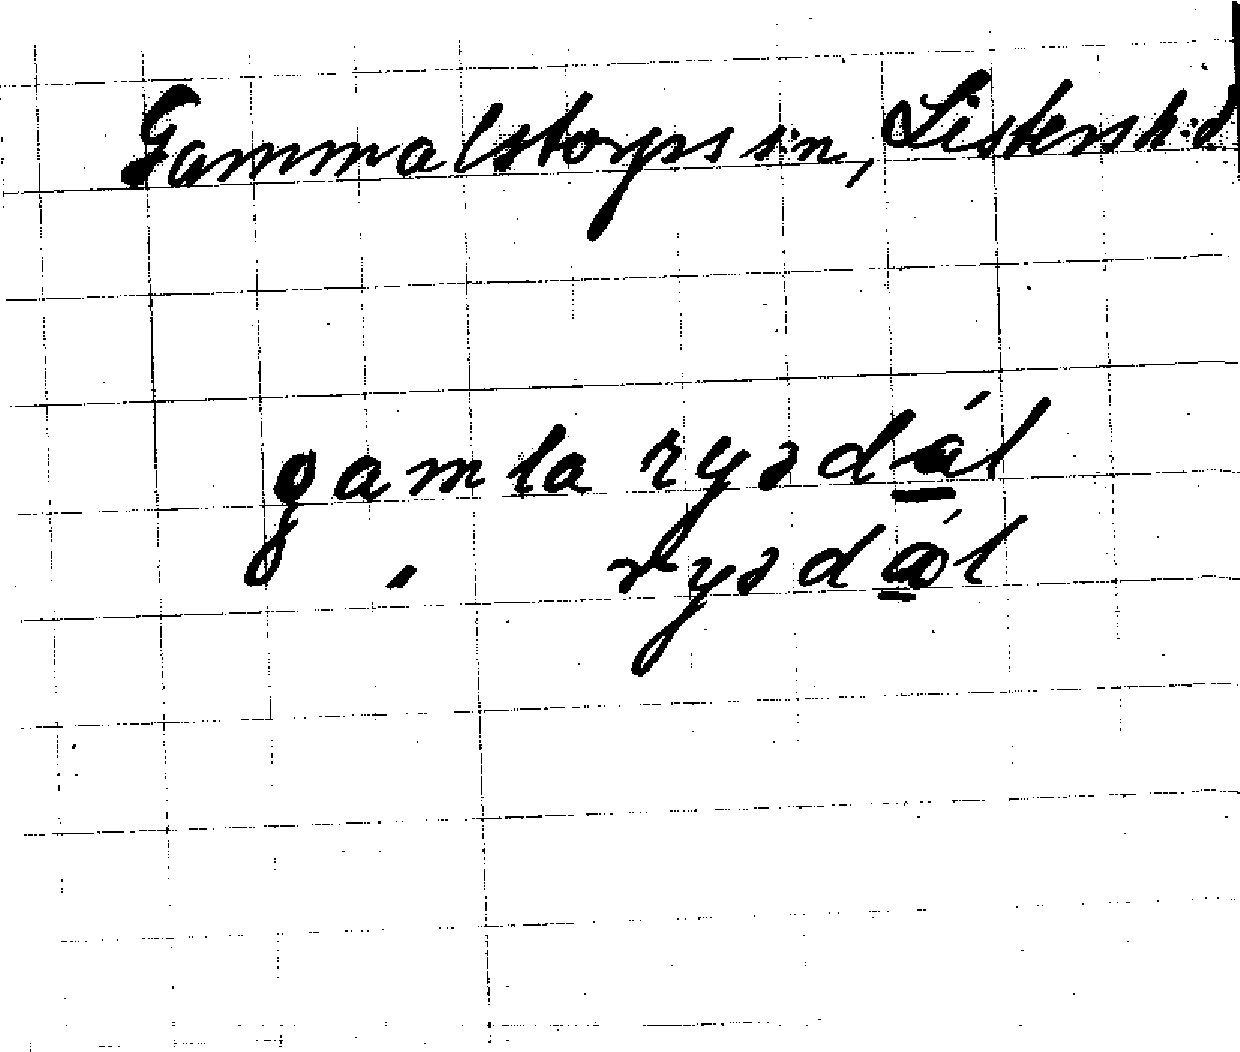 Gammalstorps s:n, Listers h:d
gamla ryzdál
" ryzdál